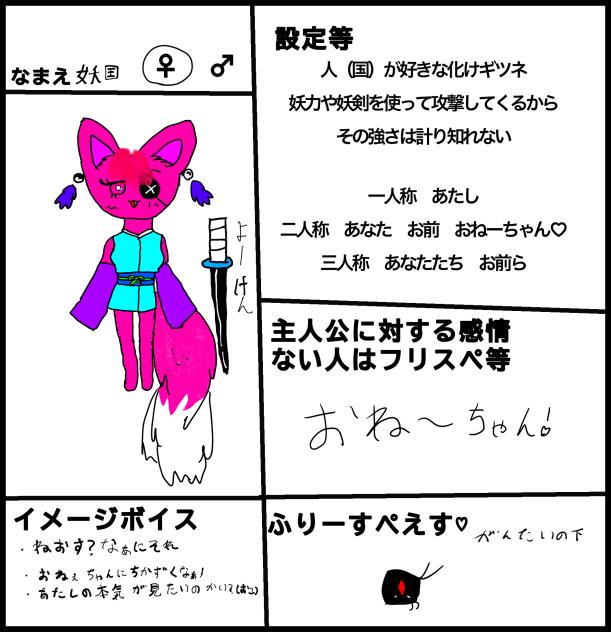 なまえ 妖国 ♀ ♂
よーけん
設定等
人（国）が好きな化けギツネ
妖力や妖剣を使って攻撃してくるから
その強さは計り知れない
一人称　あたし
二人称　あなた　お前　おねーちゃん♡
三人称　あなたたち　お前ら
主人公に対する感情
ない人はフリスペ等
おね〜ちゃん！
イメージボイス
・ねおす？なぁにそれ
・おねぇちゃんにちかずくなぁ！
・あたしの本気が見たいのかい？
ふりーすぺえす♡
がんたいの下